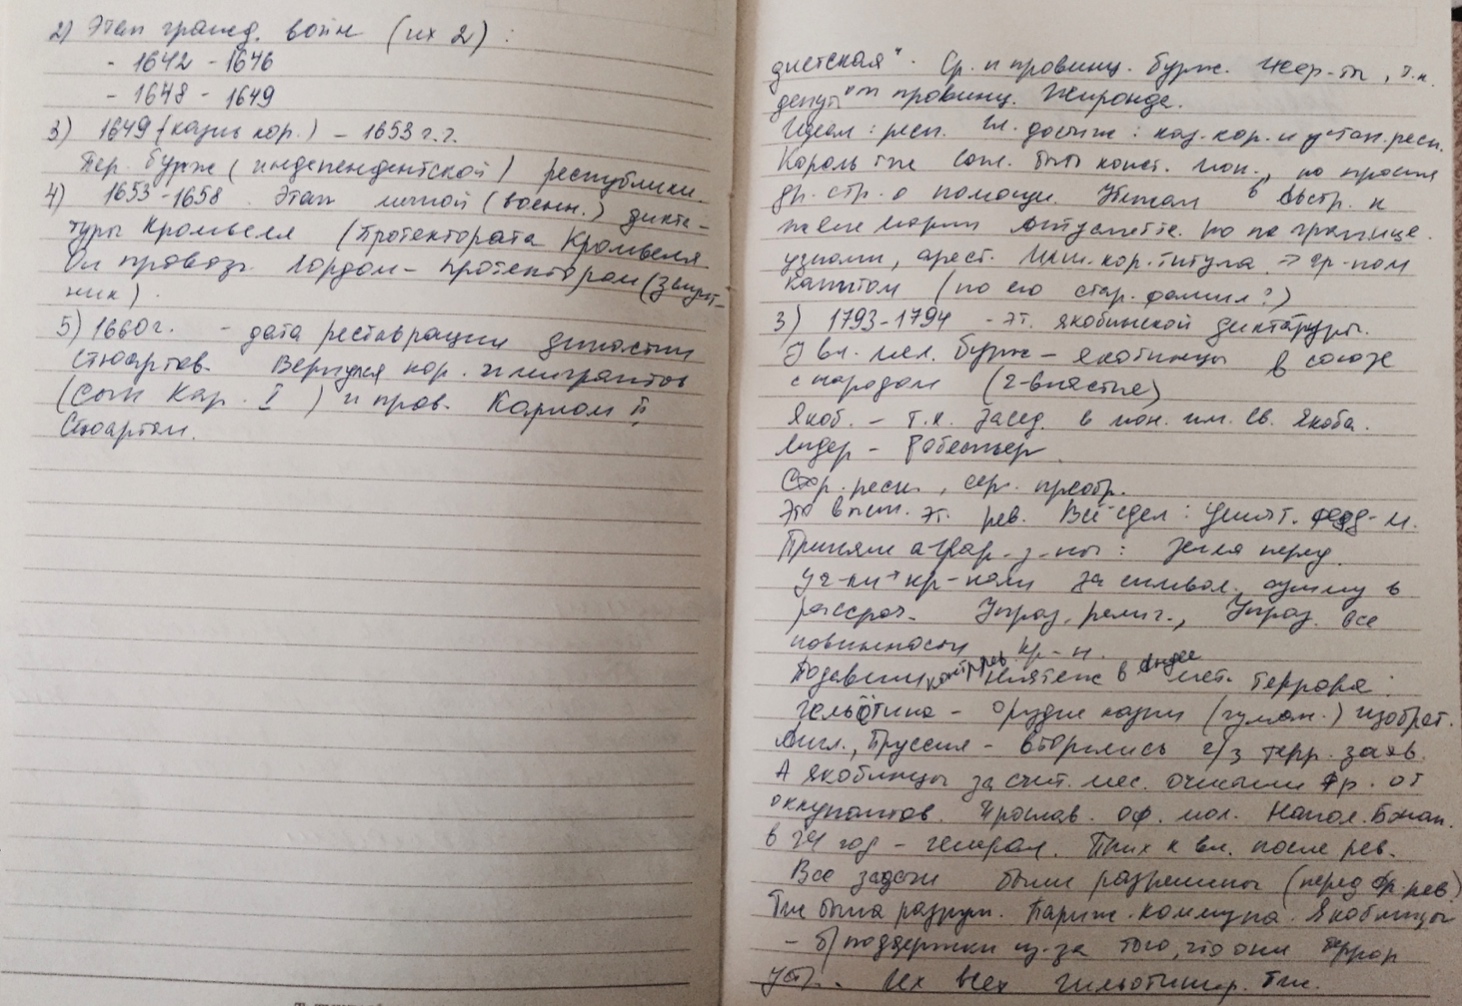 2) Этап гражд. войн (их 2) :
- 1642 - 1646
- 1648 - 1649
3) 1649 (казнь кор.) - 1653 г.г.
Пер. бурж (индепендентской) республики.
4) 1653-1658. Этап личной (военн.) дикта-
туры Кромвеля (Протектората Кромвеля
Он провозг. Лордом-протектором (защит-
ник).
5) 1660г. - дата реставрации династии
Стюартов. Вернулся кор. эмигрантов
(сын Кар. I) и пров. Карлом II
Стюартом.
дистская". Ср. и провинц. бурж. Жир-ты, т.к.
депут от провинц. Жиронде.
Идеал: респ. Гл. достиж: каз. кор. и устан. респ.
Король был конст. мон., но просил
др. стр. о помощи. Бежал в Австр. к
жене Марии Антуанетте. Но на границе
узнали, арест. Лиш. кор. титула → гр-ном
Капетом (по его стар. фамил?)
3) 1793-1794 - эт. якобинской диктатуры.
У вл. мел. бурж - якобинцы в союзе
с народом (2-властие)
Якоб. - т.к. засед. в мон. им. Св. Якоба.
Лидер - Робеспьер
респ., сер. преобр.
Это высш. эт. рев. Всё сдел: Уничт. феод-м.
Приняли аграр. з-ны: Земля перед.
уч-ки → кр-нам за символ. сумму в
рассроч. Упраз. религ., Упраз. все
повинности кр-н.
Подавили контррев. мятеж в Вандее мет. террора:
гельотина - орудие казни (гуман.) изобрет.
Англ., Пруссия - вторглись ч/з терр.
А якобинцы за счит. мес. очистили Фр. от
оккупантов. Прослав. оф. мол. Напол. Бонап.
в 24 год - генерал. Прих к вл. после рев.
Все задачи были разрешены (перед Фр. рев)
была разруш. Париж. коммуна. Якобинцы
- б/поддержки из-за того, что они террор
уст. Их всех гильотинир.